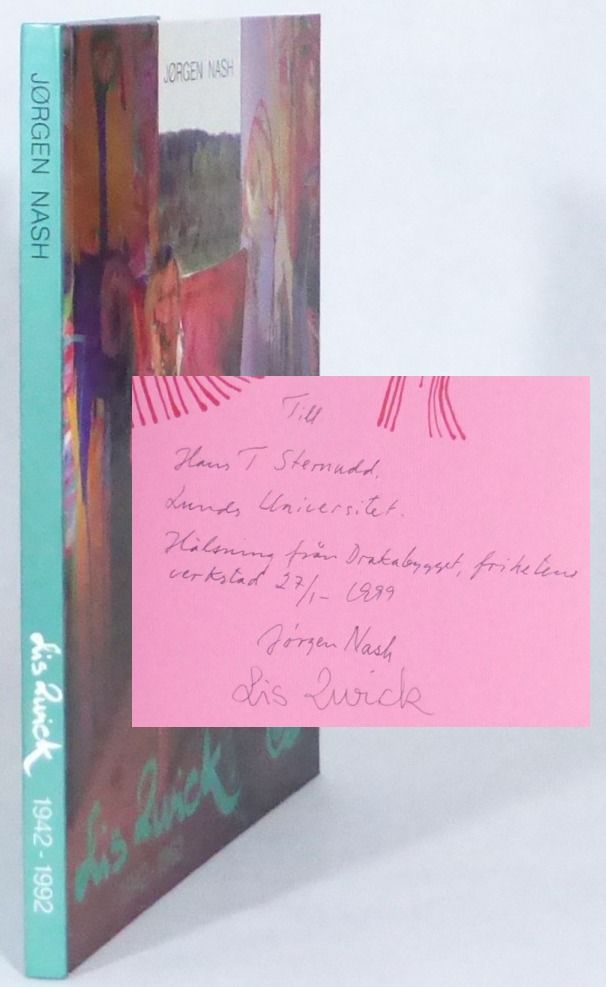 JØRGEN NASH
Lis Zwick
1942 - 1992
JØRGEN NASH
Lis Zwick
Till
Hans T Sternudd.
Lunds Universitet.
Hälsning från Drakabygget, frihetens
verkstad 27/1- 1999
Jörgen Nash
Lis Zwick